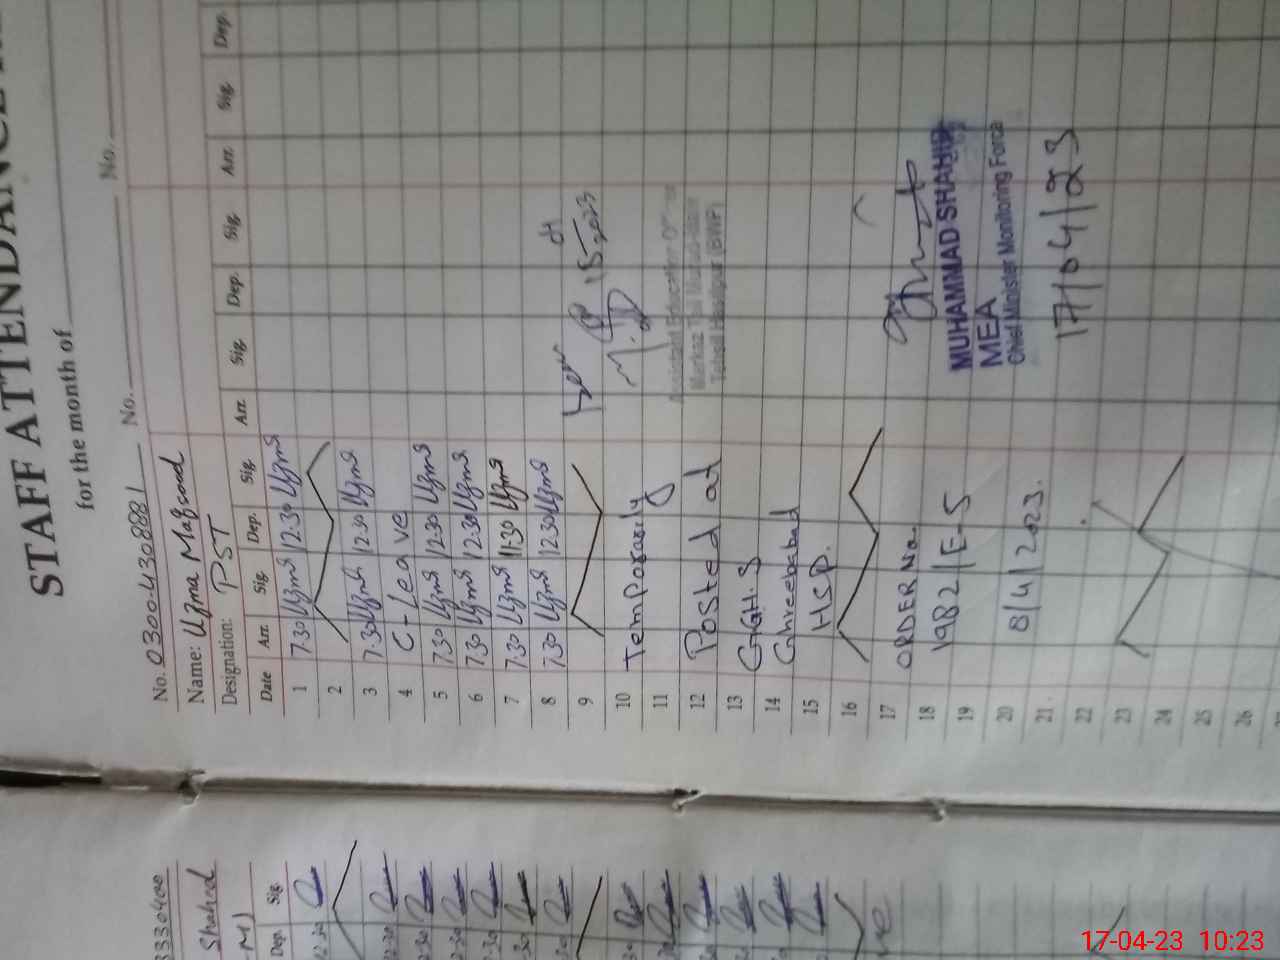 STAFF ATTENDANCE
for the month of
No.
No. 03004308881
No.
Name: Uzma Maqsood
Designation: PST
Date Arr. Sig. Dep. Sig. Arr. Sig. Dep. Sig. Arr. Sig. Dep.
1 7.30 Uzma 12.30 Uzma
2
3 7.30 Uzma 12.30 Uzma
4 C-Leave
5 7.30 Uzma 12.30 Uzma
6 7.30 Uzma 12.30 Uzma
7 7.30 Uzma 11.30 Uzma
8 7.30 Uzma 12.30 Uzma
9
10 Temporarly
11
12 Posted at
13 GGH.S
14 Ghreebabad
15 HSP.
16
17 ORDER No.
18 1982/E-5
19
20 8/4/2023.
21
22
23
24
25
26
Assistant Education Officer
Markaz
Tehsil Hasilpur (BWP)
MUHAMMAD SHAHID
MEA
Chief Minister Monitoring Force
17/04/23
333040
Shahid
Dep. Sig.
17-04-23 10:23